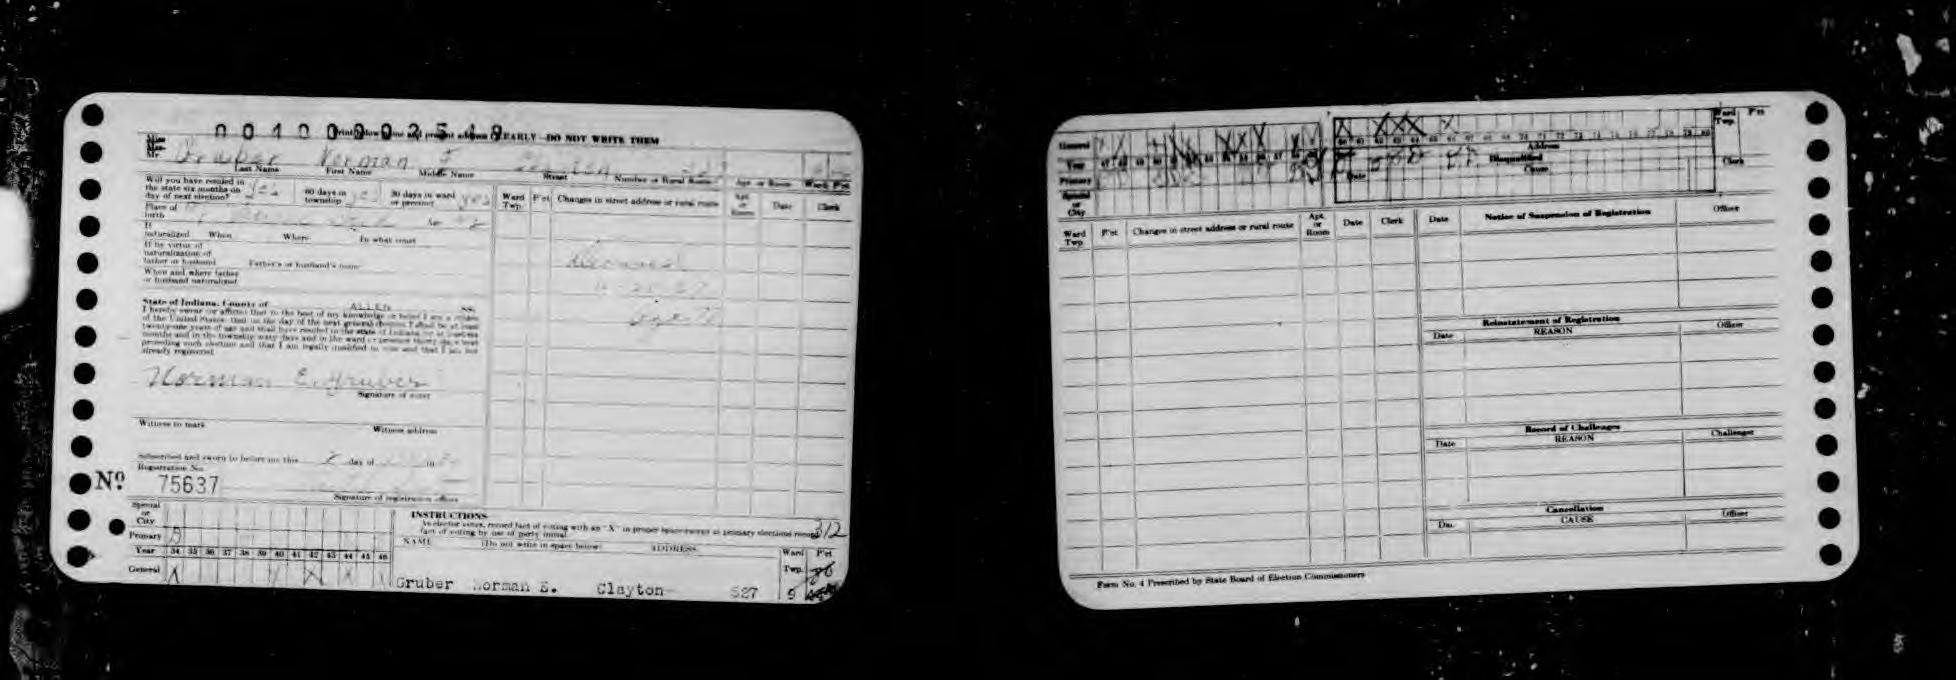 001000002519
Print below name and present address CLEARLY—DO NOT WRITE THEM
Miss
Mrs.
Mr. Gruber Norman E Clayton 527
Last Name First Name Middle Name Street Number or Rural Route Apt. or Room Ward P'ct
Will you have resided in the state six months on day of next election? yes 60 days in township yes 30 days in ward or precinct yes
Ward Twp. P'ct Changes in street address or rural route Apt. or Room Date Clerk
Place of birth
If naturalized When Where In what court
If by virtue of naturalization of father or husband Father's or husband's name
When and where father or husband naturalized
Deceased
State of Indiana, County of ALLEN SS.
I hereby swear (or affirm) that to the best of my knowledge or belief I am a citizen
of the United States; that on the day of the next general election I shall be at least
twenty-one years of age and shall have resided in the state of Indiana for at least six
months and in the township sixty days and in the ward or precinct thirty days next
preceding such election and that I am legally qualified to vote and that I am not
already registered.
Norman E. Gruber
Signature of voter
Witness to mark Witness address
Subscribed and sworn to before me this day of
Registration No.
No. 75637
Signature of registration officer
Special or City
Primary
Year 34 35 36 37 38 39 40 41 42 43 44 45 46
General X X X X
INSTRUCTIONS
As elector votes, record fact of voting with an "X" in proper space—except at primary elections record
fact of voting by use of party initial.
312
NAME (Do not write in space below) ADDRESS Ward Twp. P'ct
Gruber Norman E. Clayton 527 9
General
Year
Primary
Special or City
Address
Disqualified
Date Cause
Ward Twp. P'ct
Clerk
Ward Twp. P'ct Changes in street address or rural route Apt. or Room Date Clerk
Date Notice of Suspension of Registration Officer
Reinstatement of Registration
Date REASON Officer
Record of Challenges
Date REASON Challenger
Cancellation
Date CAUSE Officer
Form No. 4 Prescribed by State Board of Election Commissioners